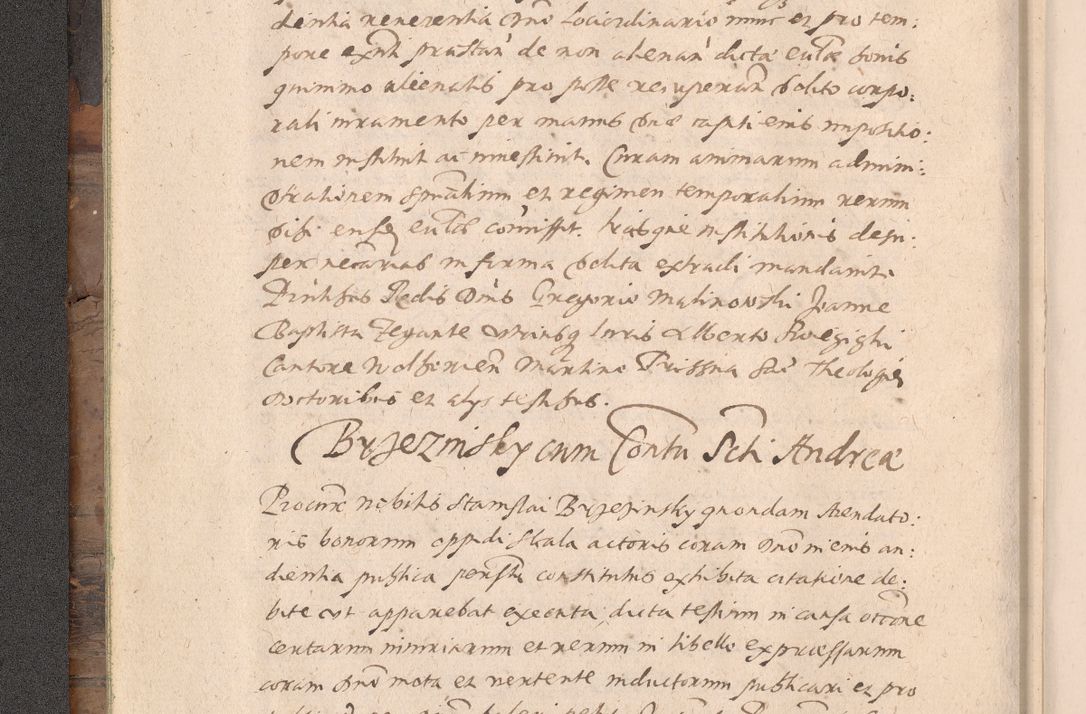 dientia reverentia Dno Lociordinario nunc et pro tem:
pore exnti praestan de non alienan dictae eccliae bonis
quinimo alienatis pro posse recuperan solito corpo:
rali iuramento per manus suae capiti eius impositio:
nem instituit ac investivit. Curam animarum admini:
strationem spualium et regimen temporalium rerum
sibi eiusdem eccliae commisit. Lrasque institutionis desu:
per necarias in forma solita extradi mandavit.
Pntibus Rndis Dnis Gregorio Malinowski Joanne
Baptista Zegante utriusq Iuris Alberto
Cantore Wolboriem Martino Prissina Stae Theologiae
Doctoribus et alys testibus.
Brzezinsky cum Contu Scti Andreae
Procur nobilis Stanislai Brzezinsky quondam Arendato:
ris bonorum oppidi Skala actoris coram Dno in eius au:
dientia publica personli constitutus exhibita citatione de:
bite ut apparebat executa, dicta testium in causa occone
certarum iniuriarum et rerum in libello expressarum
coram Dno mota et vertente inductorum publicari et pro